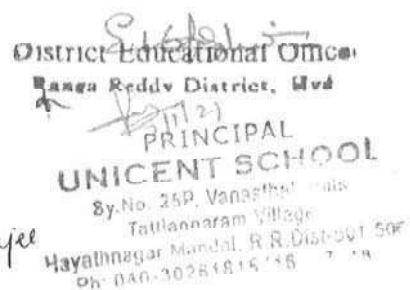 District Educational Officer
Ranga Reddy District, Hyd
PRINCIPAL
UNICENT SCHOOL
Sy.No. 25P, Vanasthali
Tattiannaram Village
Hayathnagar Mandal, R.R.Dist-501 505
Ph: 040-30261815